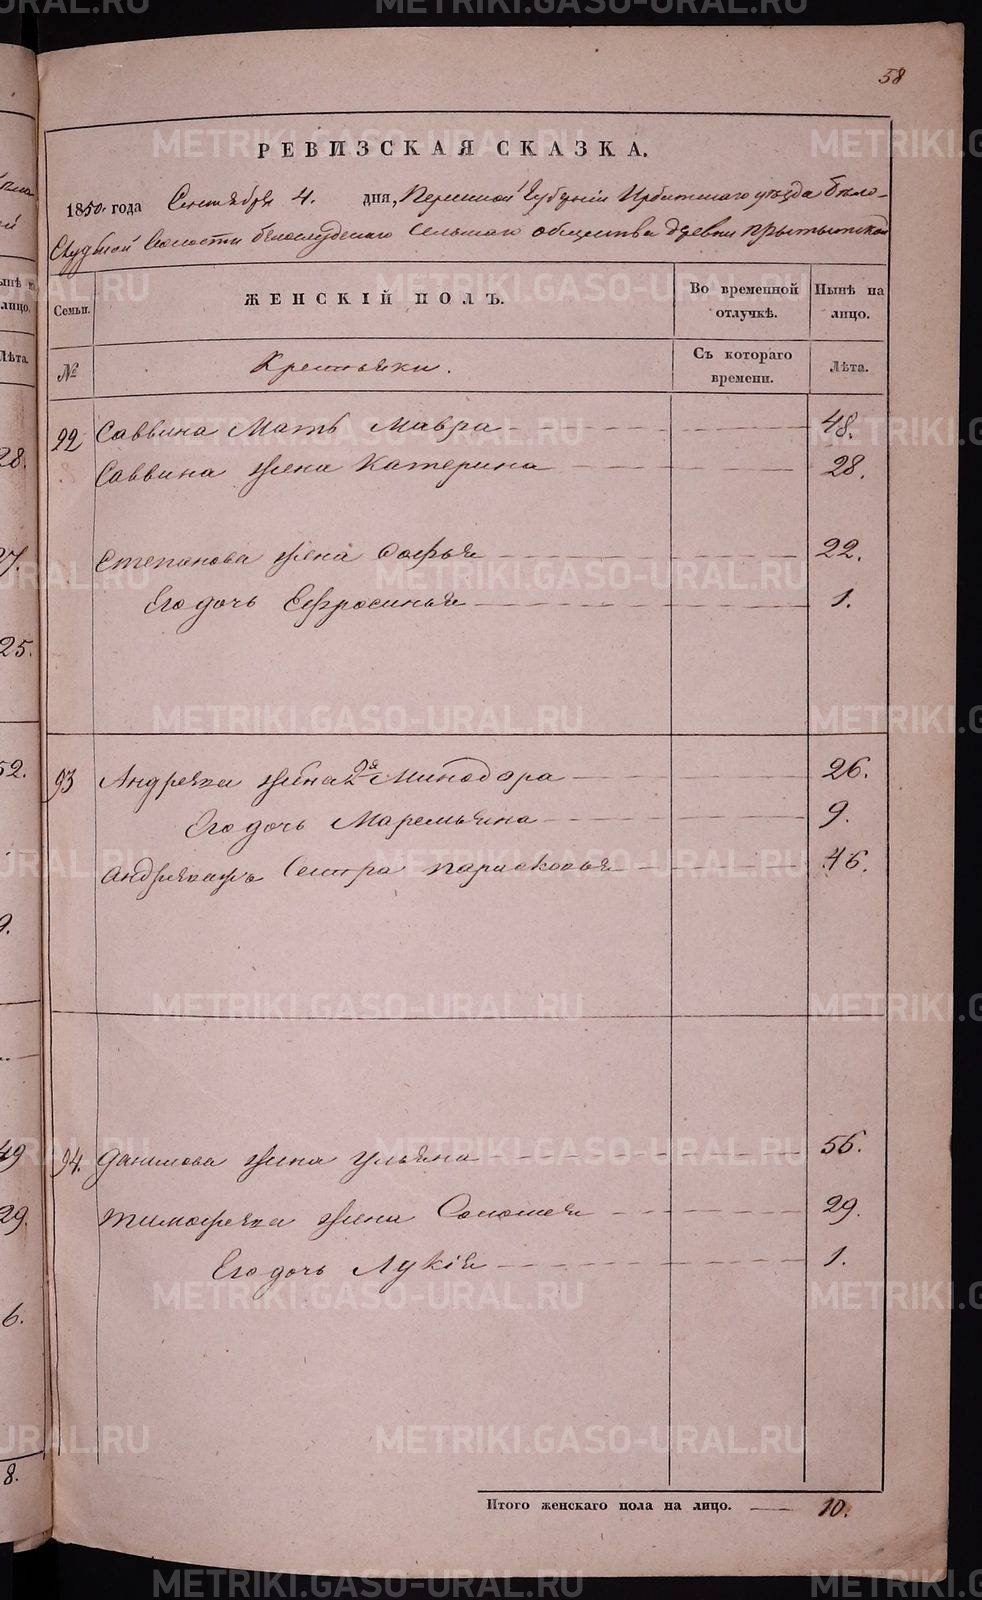 METRIKI.GASO-URAL.RU
58
РЕВИЗСКАЯ СКАЗКА.
1850 года Сентября 4. дня, Пермской Губернiи Ирбитскаго уѣзда Бѣло-
слудской Волости бѣлослудскаго сельскаго общества деревни
Семьи. ЖЕНСКІЙ ПОЛЪ. Во временной отлучкѣ. Нынѣ на лицо.
№ Крестьяки. Съ котораго времени. Лѣта.
92 Саввина Мать Мавра 48.
Саввина жена Катерина 28.
Степанова жена Софья 22.
Его дочь Ефросинья 1.
93 Андреяна жена 2я Минодора 26.
Его дочь Маремьяна 9.
Сестра парасковья 46.
94. Данилова жена Ульяна 56.
тимофеява жена Соломея 29.
Его дочь Лукiя 1.
Итого женскаго пола на лицо. 10.
ынѣ на
лицо.
Лѣта.
28.
27.
25.
52.
9.
49
29.
6.
8.